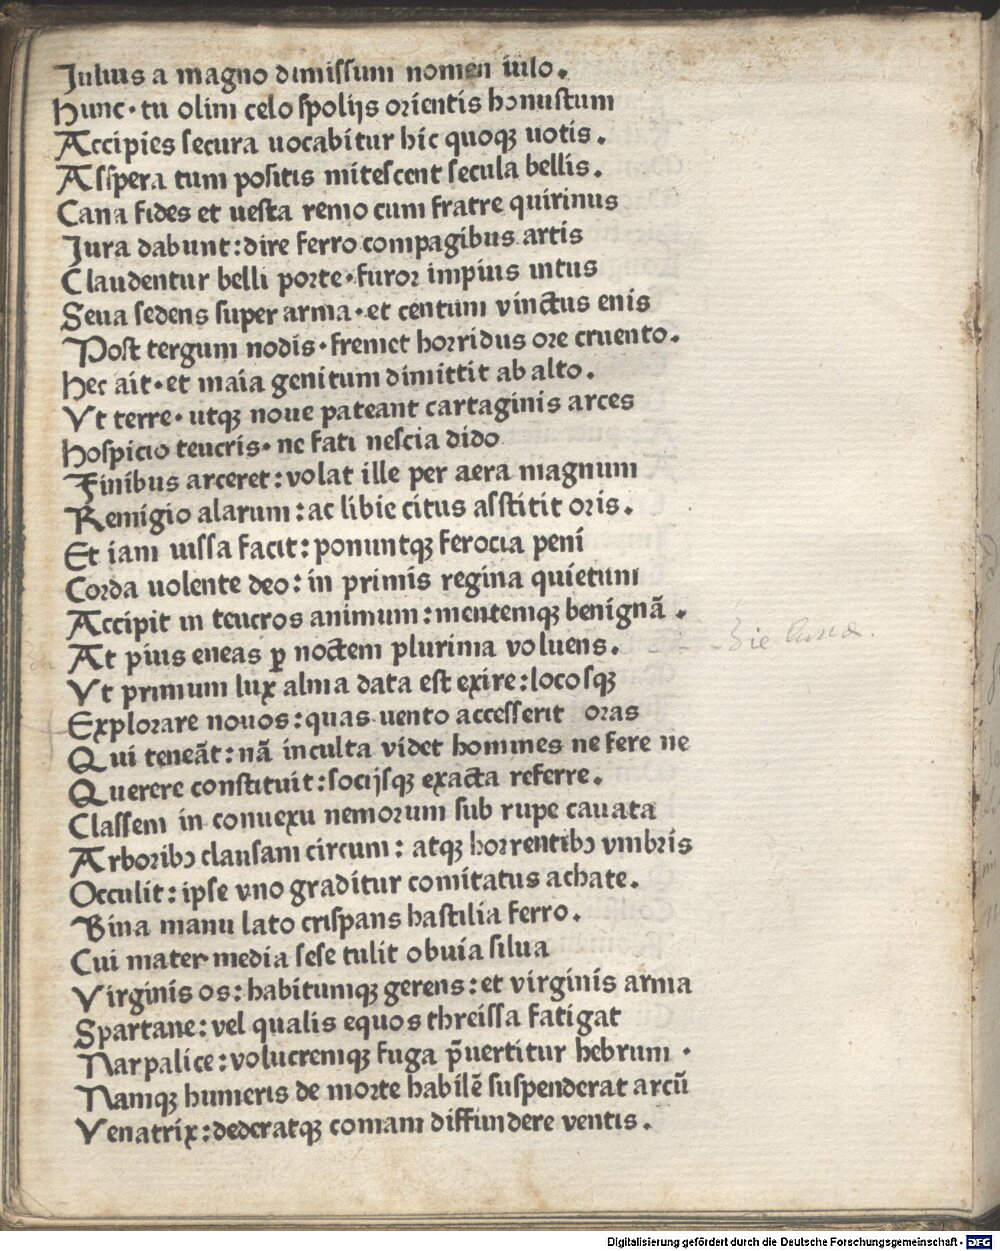 Iulius a magno dimissum nomen iulo.
Hunc·tu olim celo spolijs orientis honustum
Accipies secura uocabitur hic quoqꝫ uotis.
Asspera tum positis mitescent secula bellis.
Cana fides et uesta remo cum fratre quirinus
Iura dabunt:dire ferro compagibus artis
Claudentur belli porte·furor impius intus
Seua sedens super arma·et centum vinctus enis
Post tergum nodis·fremet horridus ore cruento.
Hec ait·et maia genitum dimittit ab alto.
Vt terre·utqꝫ noue pateant cartaginis arces
Hospicio teucris·ne fati nescia dido
Finibus arceret:volat ille per aera magnum
Remigio alarum:ac libie citus asstitit oris.
Et iam uissa facit:ponuntqꝫ ferocia peni
Corda uolente deo:in primis regina quietum
Accipit in teucros animum:mentemqꝫ benignā.
At pius eneas ꝑ noctem plurima voluens.
Vt primum lux alma data est exire:locosqꝫ
Explorare nouos:quas uento accesserit oras
Qui teneāt:nā inculta videt homines ne fere ne
Querere constituit:socijsqꝫ exacta referre.
Classem in conuexu nemorum sub rupe cauata
Arboribꝯ clausam circum: atqꝫ horrentibꝯ vmbris
Occulit:ipse vno graditur comitatus achate.
Bina manu lato crispans hastilia ferro.
Cui mater media sese tulit obuia silua
Virginis os:habitumqꝫ gerens:et virginis arma
Spartane:vel qualis equos threissa fatigat
Narpalice:volucremqꝫ fuga p̄uertitur hebrum·
Namqꝫ humeris de morte habilē suspenderat arcū
Venatrix:dederatqꝫ comam diffundere ventis.
Digitalisierung gefördert durch die Deutsche Forschungsgemeinschaft - DFG